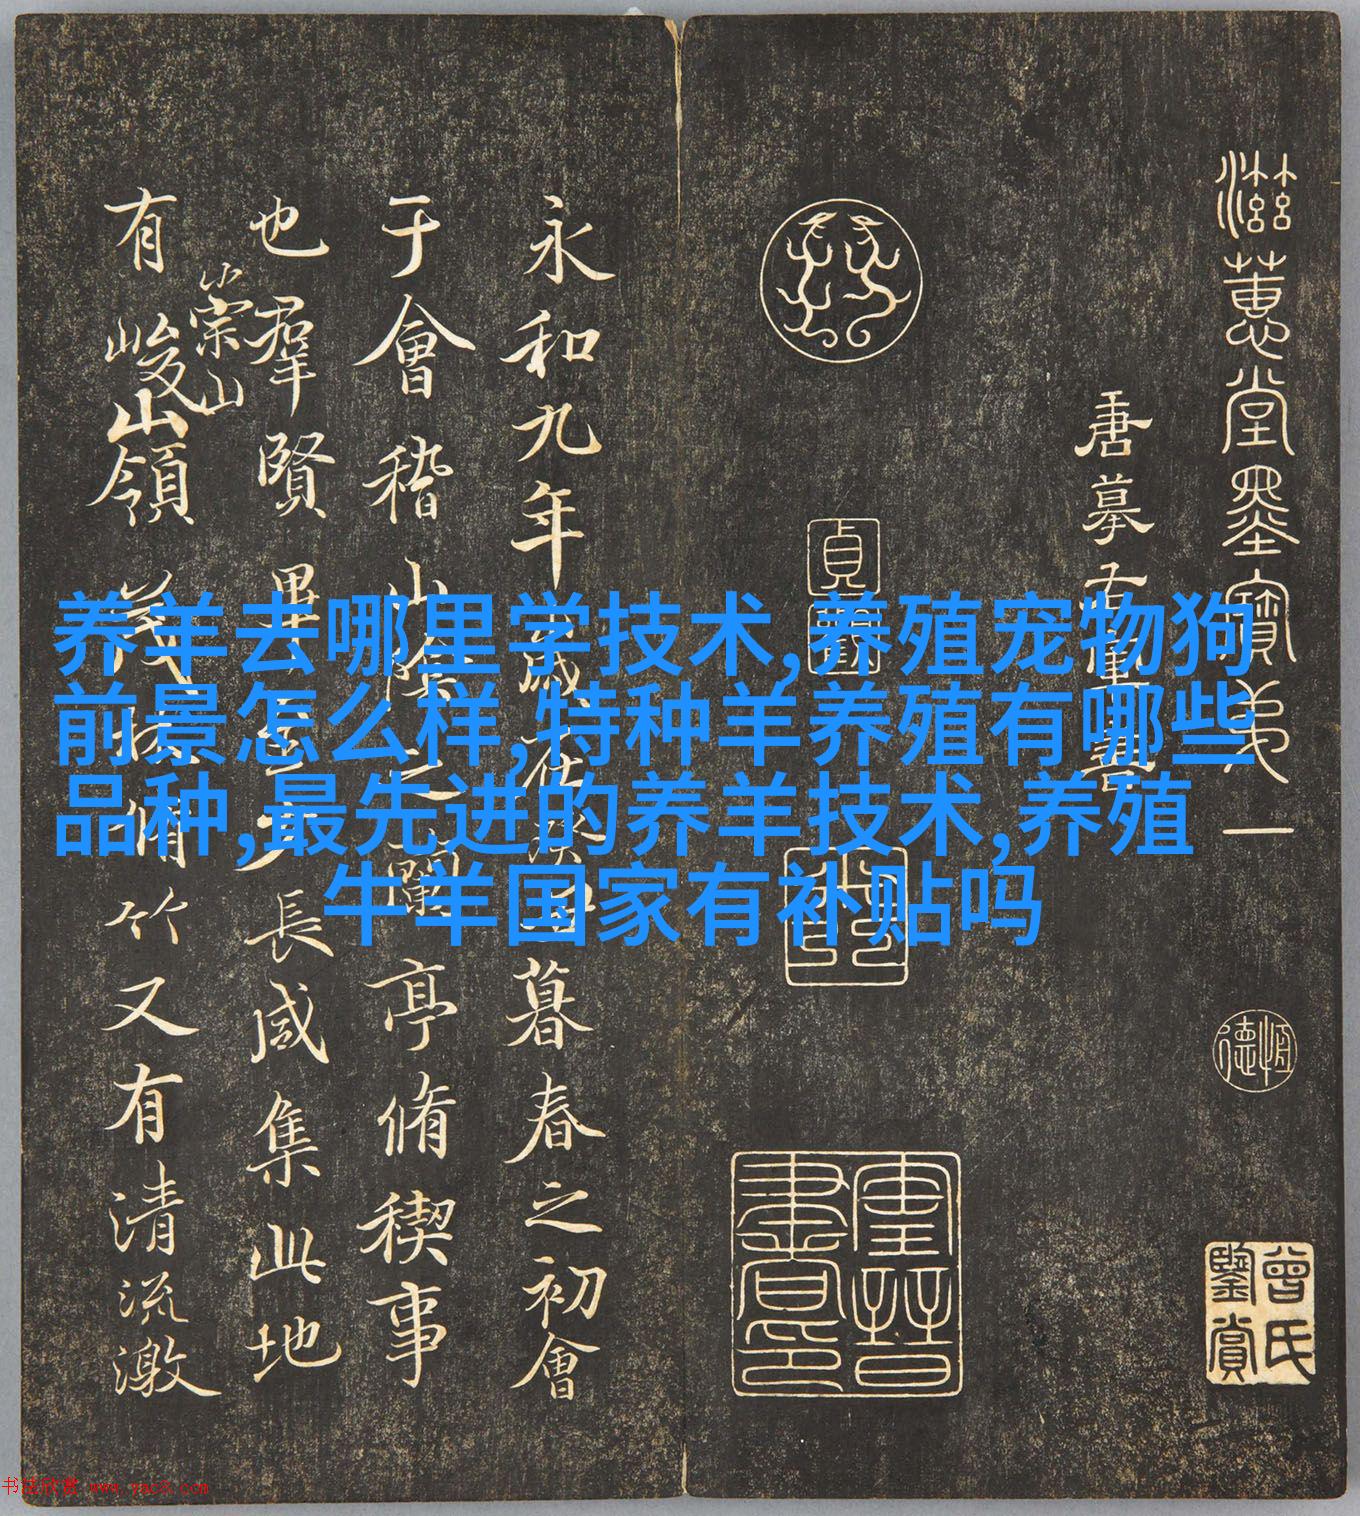 滋蕙堂墨寶弟一
唐摹右軍書
恒德
曾氏鑒賞
永和九年歲在癸丑暮春之初會
于會稽山陰之蘭亭脩稧事
也羣賢畢至少長咸集此地
有崇山
峻山領茂林脩竹又有清流激
养羊去哪里学技术,养殖宠物狗
前景怎么样,特种羊养殖有哪些
品种,最先进的养羊技术,养殖
牛羊国家有补贴吗
书法欣赏 www.yac8.com